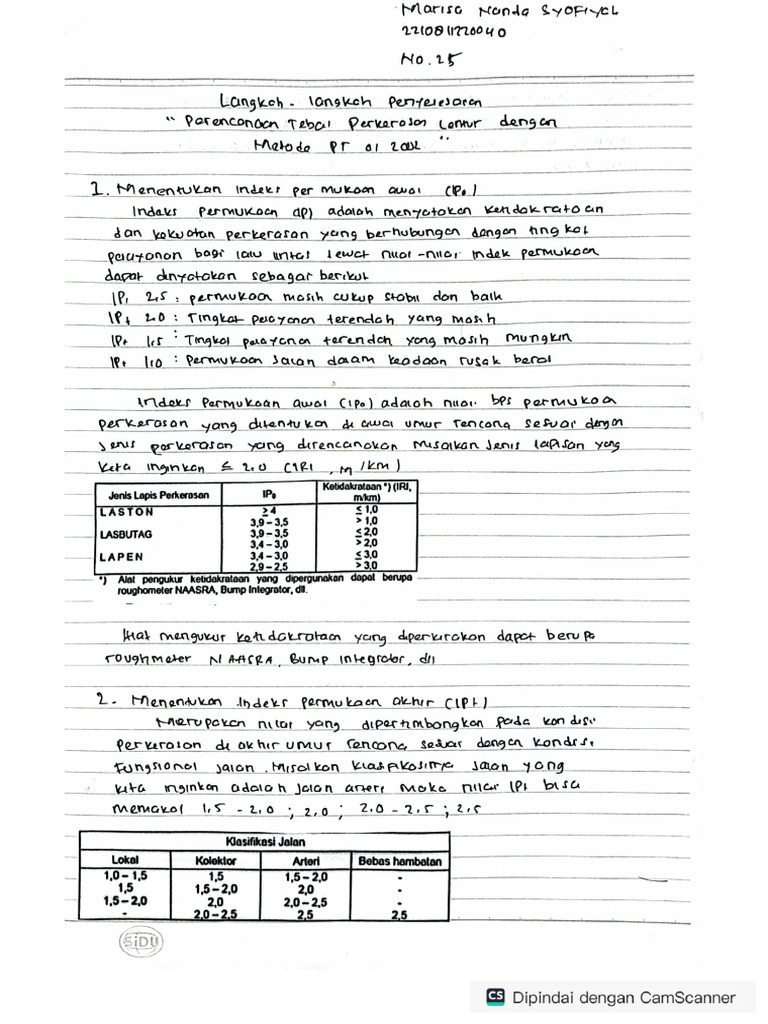 Marisa Nanda Syofiyal
221081220040
No. 25
Langkah - langkah Penyelesaian
" Perencanaan Tebal Perkerasan Lentur dengan
Metode PT 01 2002 "
1. Menentukan indeks per mukaan awal (IPo)
Indeks Permukaan (IP) adalah menyatakan ketidakrataan
dan kekuatan perkerasan yang berhubungan dengan tingkat
pelayanan bagi lalu lintas lewat nilai-nilai indek permukaan
dapat dinyatakan sebagai berikut
IPt 2,5 : permukaan masih cukup stabil dan baik
IPt 2.0 : Tingkat pelayanan terendah yang masih
IPt 1,5 : Tingkat pelayanan terendah yang masih mungkin
IPt 1,0 : Permukaan jalan dalam keadaan rusak berat
Indeks Permukaan awal (IPo) adalah nilai bps permukaa
perkerasan yang ditentukan di awal umur rencana sesuai dengan
jenis perkerasan yang direncanakan misalkan jenis lapisan yang
kita inginkan ≤ 2,0 (IRI, m/km)
Jenis Lapis Perkerasan IP0 Ketidakrataan *) (IRI, m/km)
LASTON ≥ 4 ≤ 1,0
3,9 – 3,5 > 1,0
LASBUTAG 3,9 – 3,5 ≤ 2,0
3,4 – 3,0 > 2,0
LAPEN 3,4 – 3,0 ≤ 3,0
2,9 – 2,5 > 3,0
*) Alat pengukur ketidakrataan yang dipergunakan dapat berupa
roughometer NAASRA, Bump Integrator, dll.
Alat mengukur ketidakrataan yang diperkirakan dapat berupa
roughmeter NAASRA, Bump Integrator, dll
2. Menentukan Indeks permukaan akhir (IPt)
Merupakan nilai yang dipertimbangkan pada kondisi
perkerasan di akhir umur rencana, sesuai dengan kondisi
fungsional jalan. Misalkan klasifikasinya jalan yang
kita inginkan adalah jalan arteri maka nilai IPt bisa
memakai 1,5 - 2,0 ; 2,0 ; 2.0 - 2,5 ; 2,5
Klasifikasi Jalan
Lokal Kolektor Arteri Bebas hambatan
1,0 – 1,5 1,5 1,5 – 2,0 -
1,5 1,5 – 2,0 2,0 -
1,5 – 2,0 2,0 2,0 – 2,5 -
- 2,0 – 2,5 2,5 2,5
SiDU
CS Dipindai dengan CamScanner